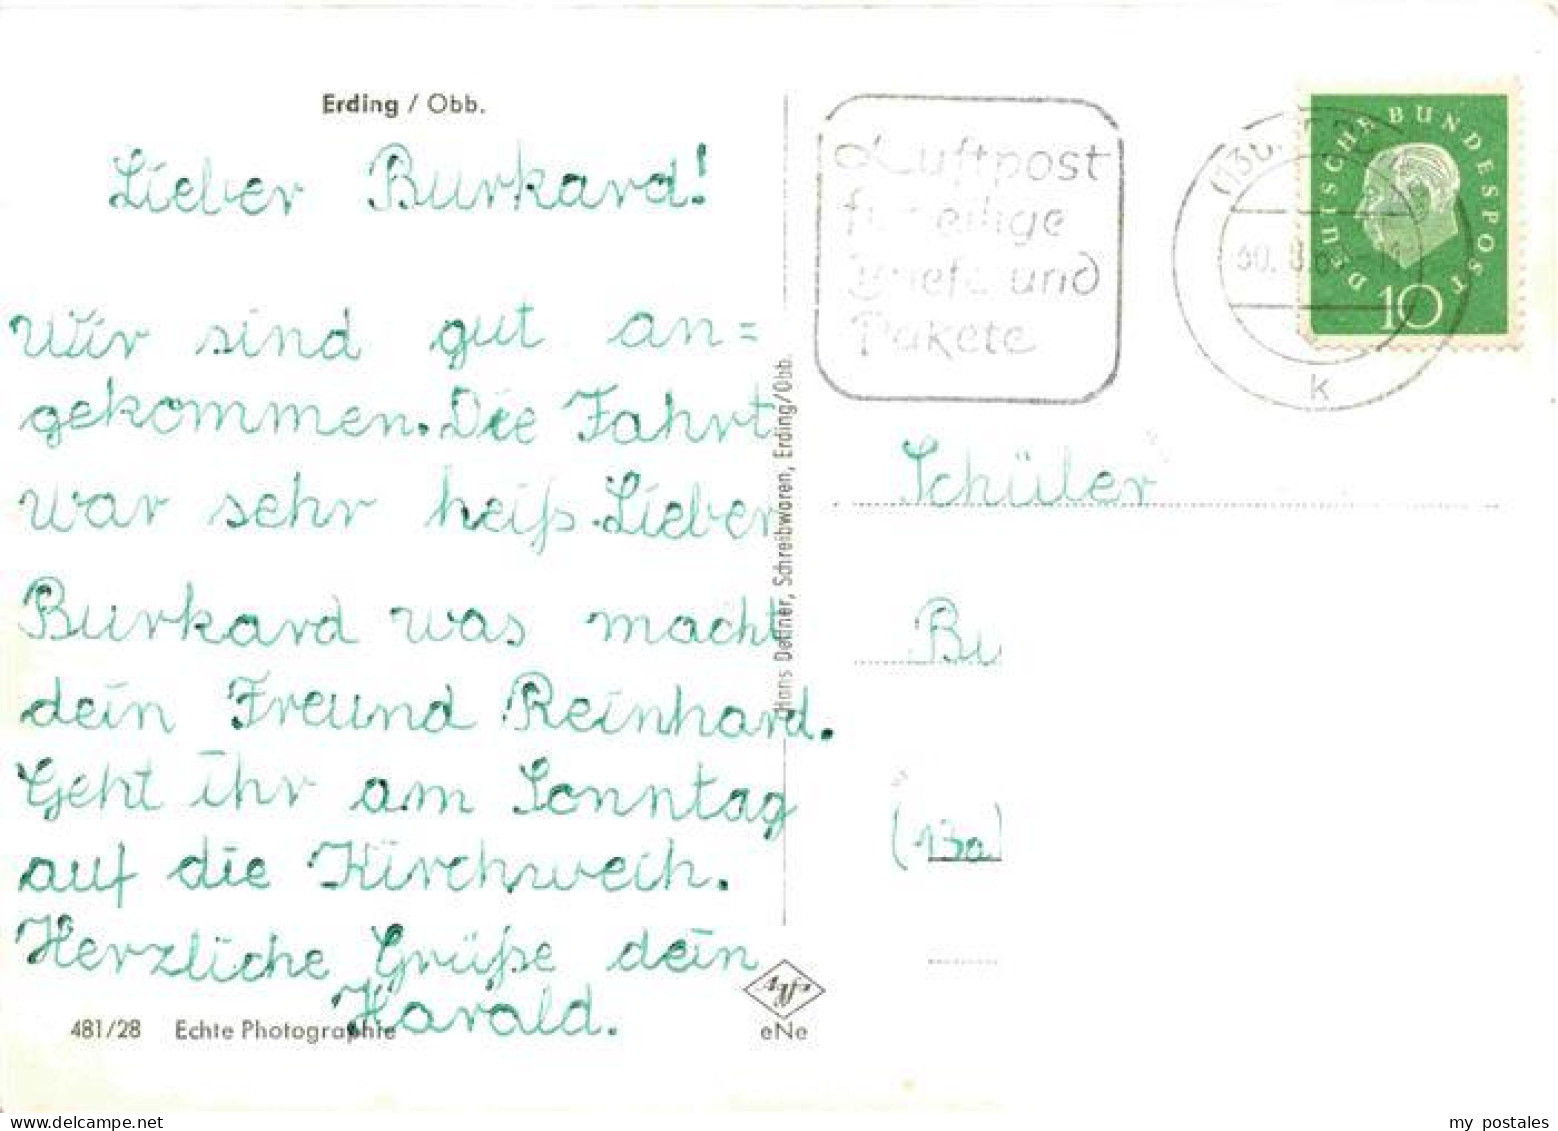 Erding / Obb.
Lieber Burkard!
Wir sind gut an=
gekommen. Die Fahrt
war sehr heiß. Lieber
Burkard was macht
dein Freund Reinhard.
Geht ihr am Sonntag
auf die Kirchweih.
Herzliche Grüße dein
Harald.
481/28 Echte Photographie
Hans Dettner, Schreibwaren, Erding/Obb.
Agfa
eNe
Luftpost
für eilige
Briefe und
Pakete
(13b)
k
DEUTSCHE BUNDESPOST
10
Schüler
Bu
(13a)
my postales